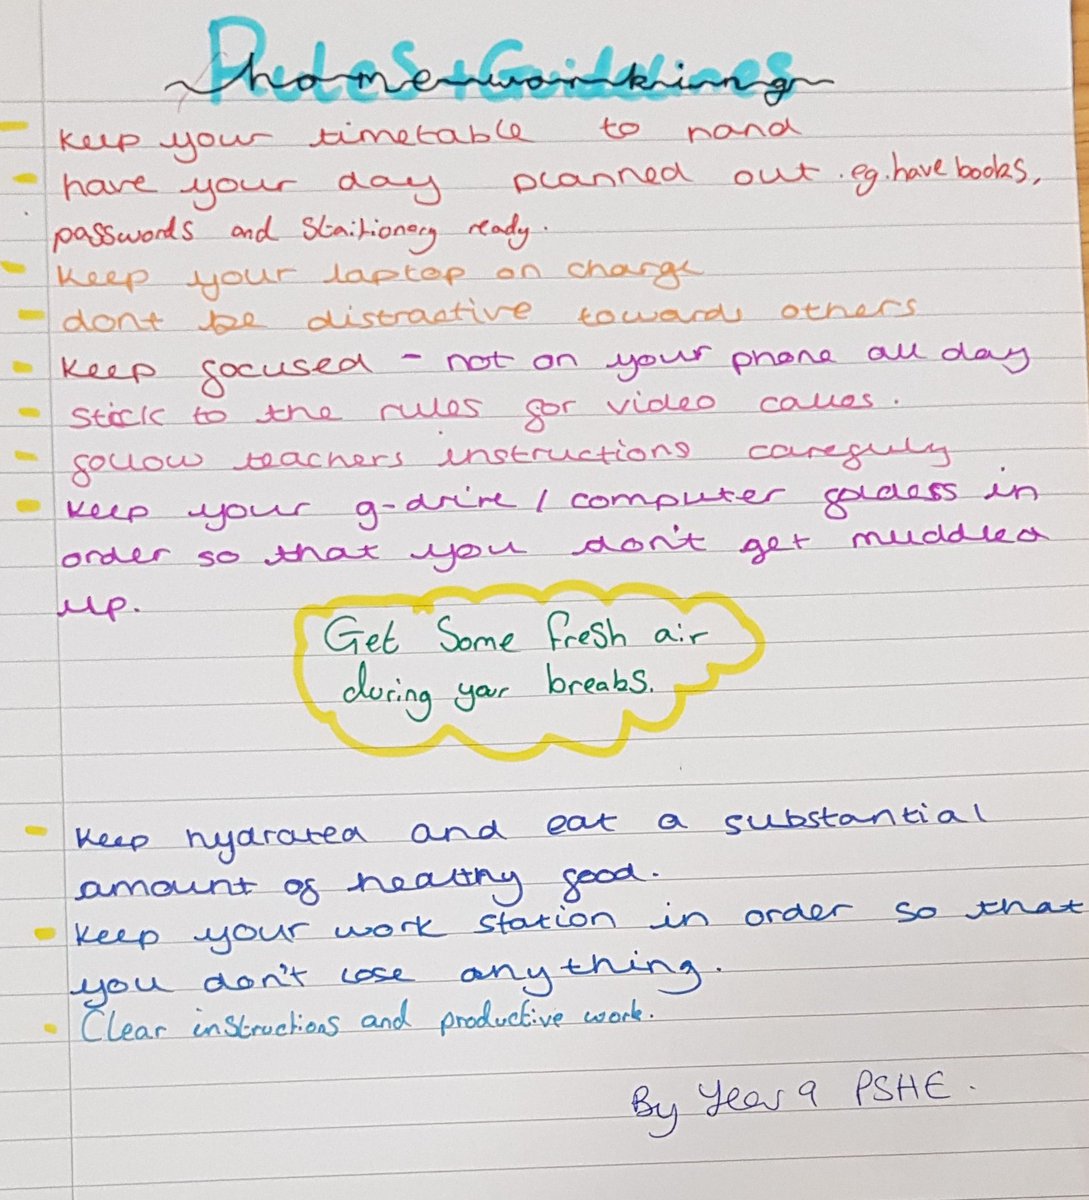 home working
keep your timetable to hand
have your day planned out. eg. have books,
passwords and Staitionery ready.
keep your laptop on charge
dont be distractive towards others
keep focused - not on your phone all day
stick to the rules for video calles.
follow teachers instructions carefully
keep your g-drive / computer folders in
order so that you don't get muddled
up.
Get Some fresh air
during your breaks.
keep hydrated and eat a substantial
amount of healthy food.
keep your work station in order so that
you don't lose anything.
Clear instructions and productive work.
By Year 9 PSHE.